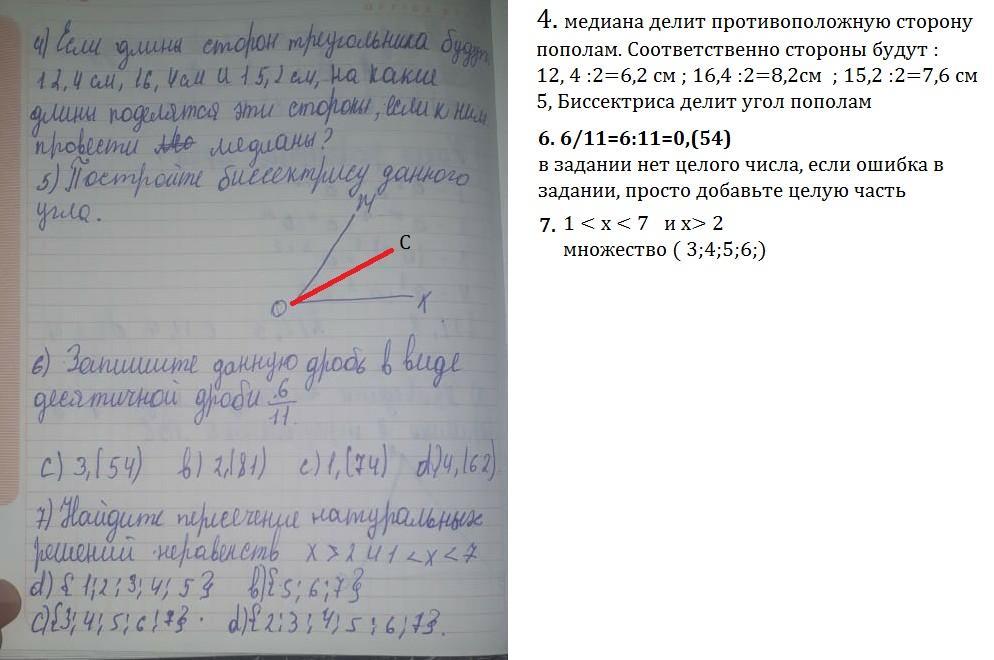 4) Если длины сторон треугольника будут
12,4 см, 16,4см и 15,2 см, на какие
длины поделятся эти стороны, если к ним
провести медианы?
5) Постройте биссектрису данного
угла.
M
C
O
X
6) Запишите данную дробь в виде
десятичной дроби 6/11.
c) 3,(54) b) 2,(81) c) 1,(74) d) 4,(62)
7) Найдите пересечение натуральных
решений неравенств x > 2 и 1 < x < 7
d) {1; 2; 3; 4; 5} b) {5; 6; 7}
c) {3; 4; 5; 6; 7} . d) {2; 3; 4; 5; 6; 7}.
4. медиана делит противоположную сторону
пополам. Соответственно стороны будут :
12, 4 :2=6,2 см ; 16,4 :2=8,2см ; 15,2 :2=7,6 см
5, Биссектриса делит угол пополам
6. 6/11=6:11=0,(54)
в задании нет целого числа, если ошибка в
задании, просто добавьте целую часть
7. 1 < x < 7 и x> 2
множество ( 3;4;5;6;)